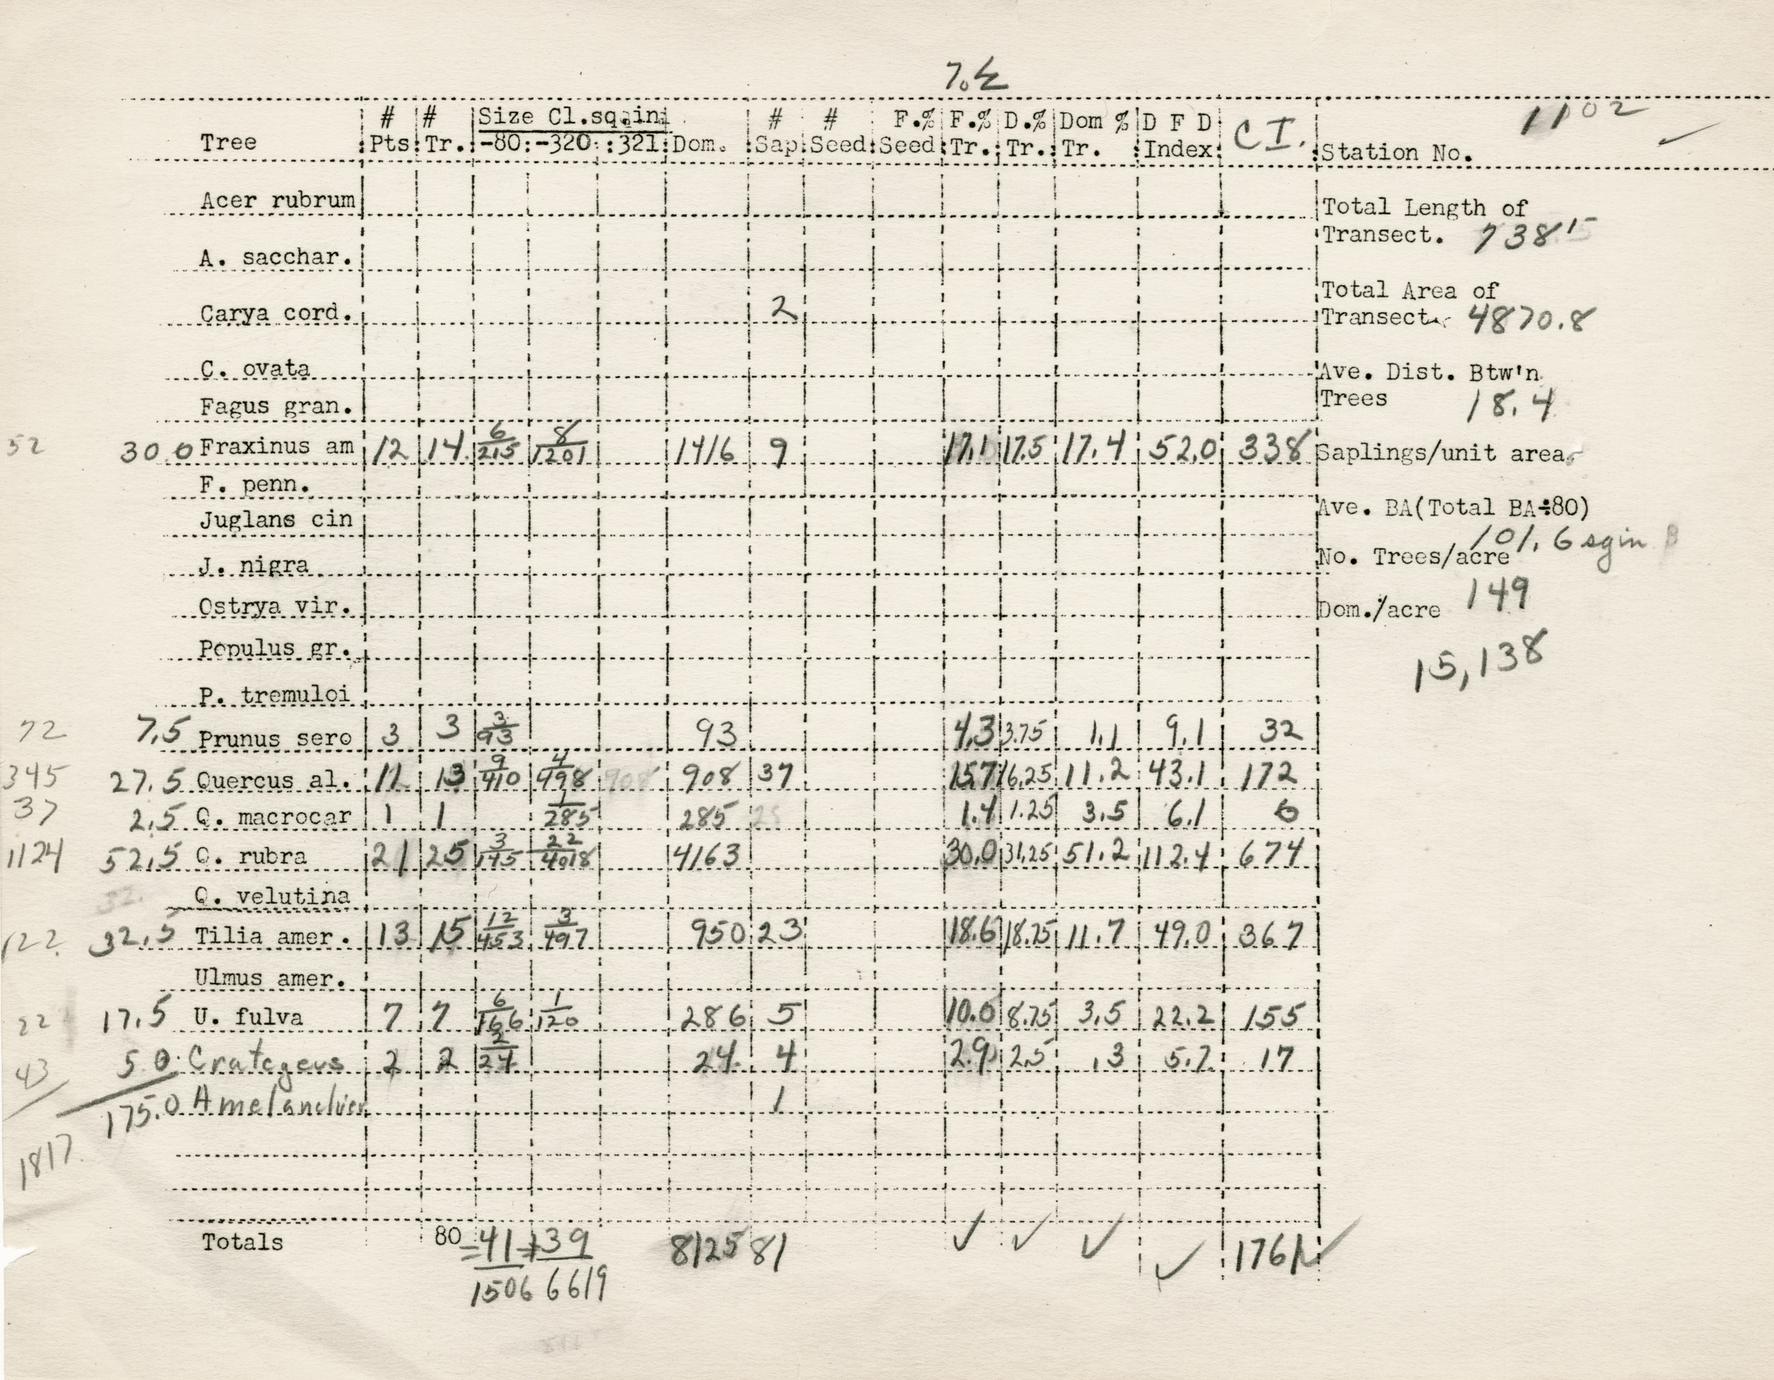 # # Size Cl.sq.in. # # F.% F.% D.% Dom % D F D C I. 1102
Tree Pts Tr. -80 -320 321 Dom. Sap Seed Seed Tr. Tr. Tr. Index Station No.
Acer rubrum
Total Length of
Transect. 738'
A. sacchar.
Total Area of
Carya cord. 2
Transect 4870.8
C. ovata
Ave. Dist. Btw'n
Trees 18.4
Fagus gran.
52 30.0 Fraxinus am 12 14 6/215 8/1201 1416 9 17.1 17.5 17.4 52.0 338
Saplings/unit area
F. penn.
Ave. BA(Total BA÷80)
101.6 sqin
Juglans cin
No. Trees/acre
149
J. nigra
Ostrya vir.
Dom./acre
15,138
Populus gr.
P. tremuloi
72 7.5 Prunus sero 3 3 3/93 93 4.3 3.75 1.1 9.1 32
345 27.5 Quercus al. 11 13 9/410 4/498 908 37 15.7 16.25 11.2 43.1 172
37 2.5 Q. macrocar 1 1 1/285 285 1.4 1.25 3.5 6.1 6
1124 52.5 Q. rubra 21 25 3/145 22/4018 4163 30.0 31.25 51.2 112.4 674
Q. velutina
122 32.5 Tilia amer. 13 15 12/453 3/497 950 23 18.6 18.75 11.7 49.0 367
Ulmus amer.
22 17.5 U. fulva 7 7 6/166 1/120 286 5 10.0 8.75 3.5 22.2 155
43 5.0 Crategeus 2 2 2/24 24 4 2.9 2.5 .3 5.7 17
175.0 Amelanchier 1
1817
Totals 80 = 41/1506 + 39/6619 8125 81 ✓ ✓ ✓ ✓ 1761 ✓